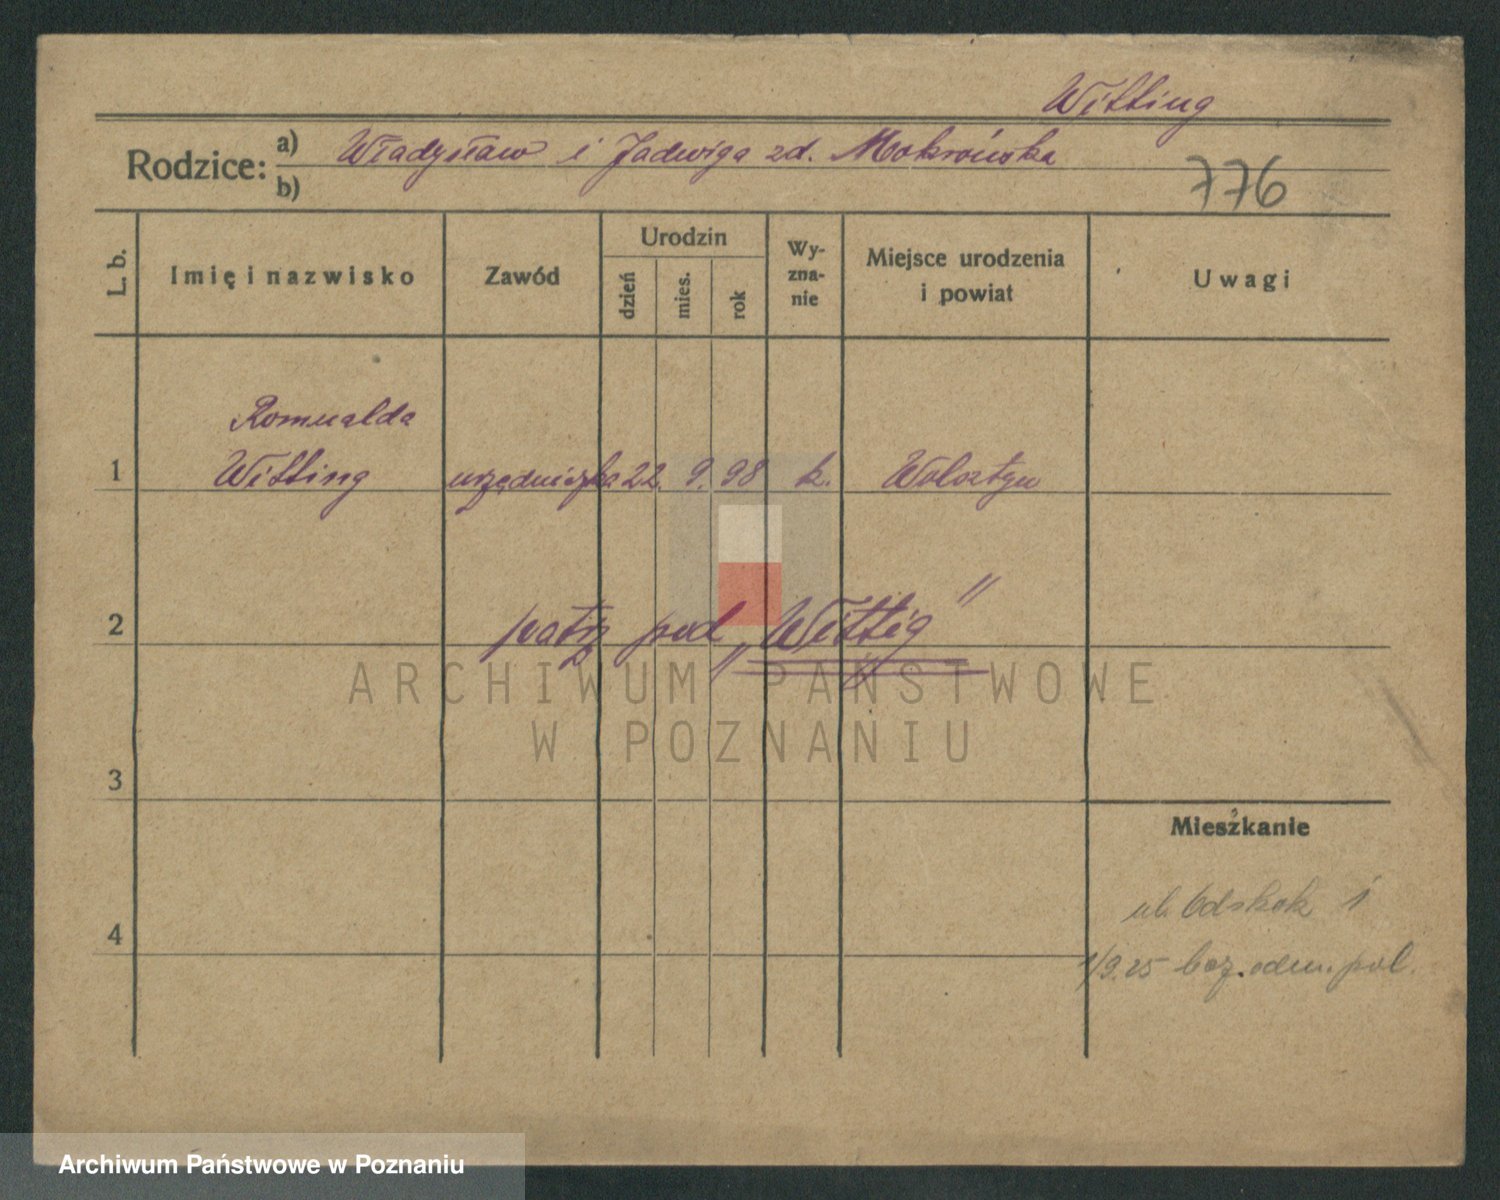 Witting
Rodzice: a) Władysław i Jadwiga zd. Mokrońska
b)
776
L. b.
Imię i nazwisko
Zawód
Urodzin
dzień
mies.
rok
Wy-
zna-
nie
Miejsce urodzenia
i powiat
Uwagi
Romualda
1 Witting urzędniczka 22. 9. 98 k. Wolsztyn
2 patrz pod „Wittig"
ARCHIWUM PAŃSTWOWE
W POZNANIU
3
Mieszkanie
ul. Odskok 1
4
1/9.25 bez. odm. pol.
Archiwum Państwowe w Poznaniu